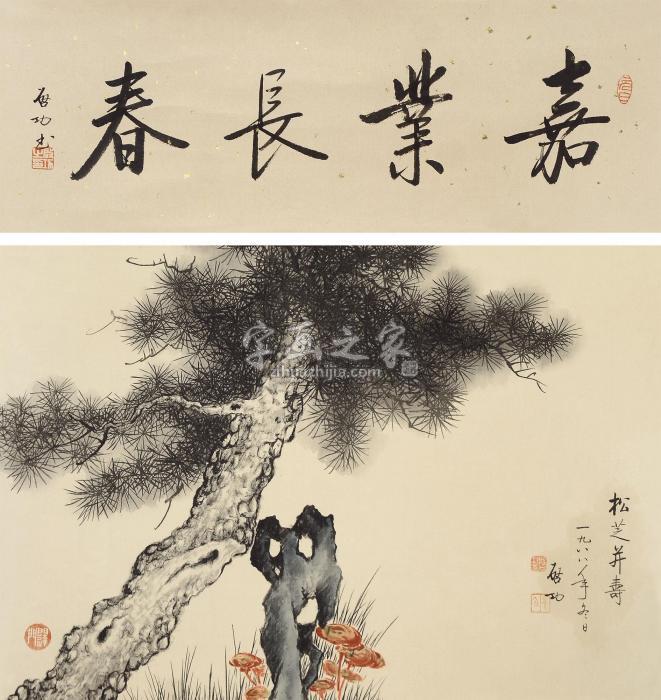 嘉業長春
啟功書
字画之家
zihuazhijia.com
松芝并壽
一九八八年冬日
啟功